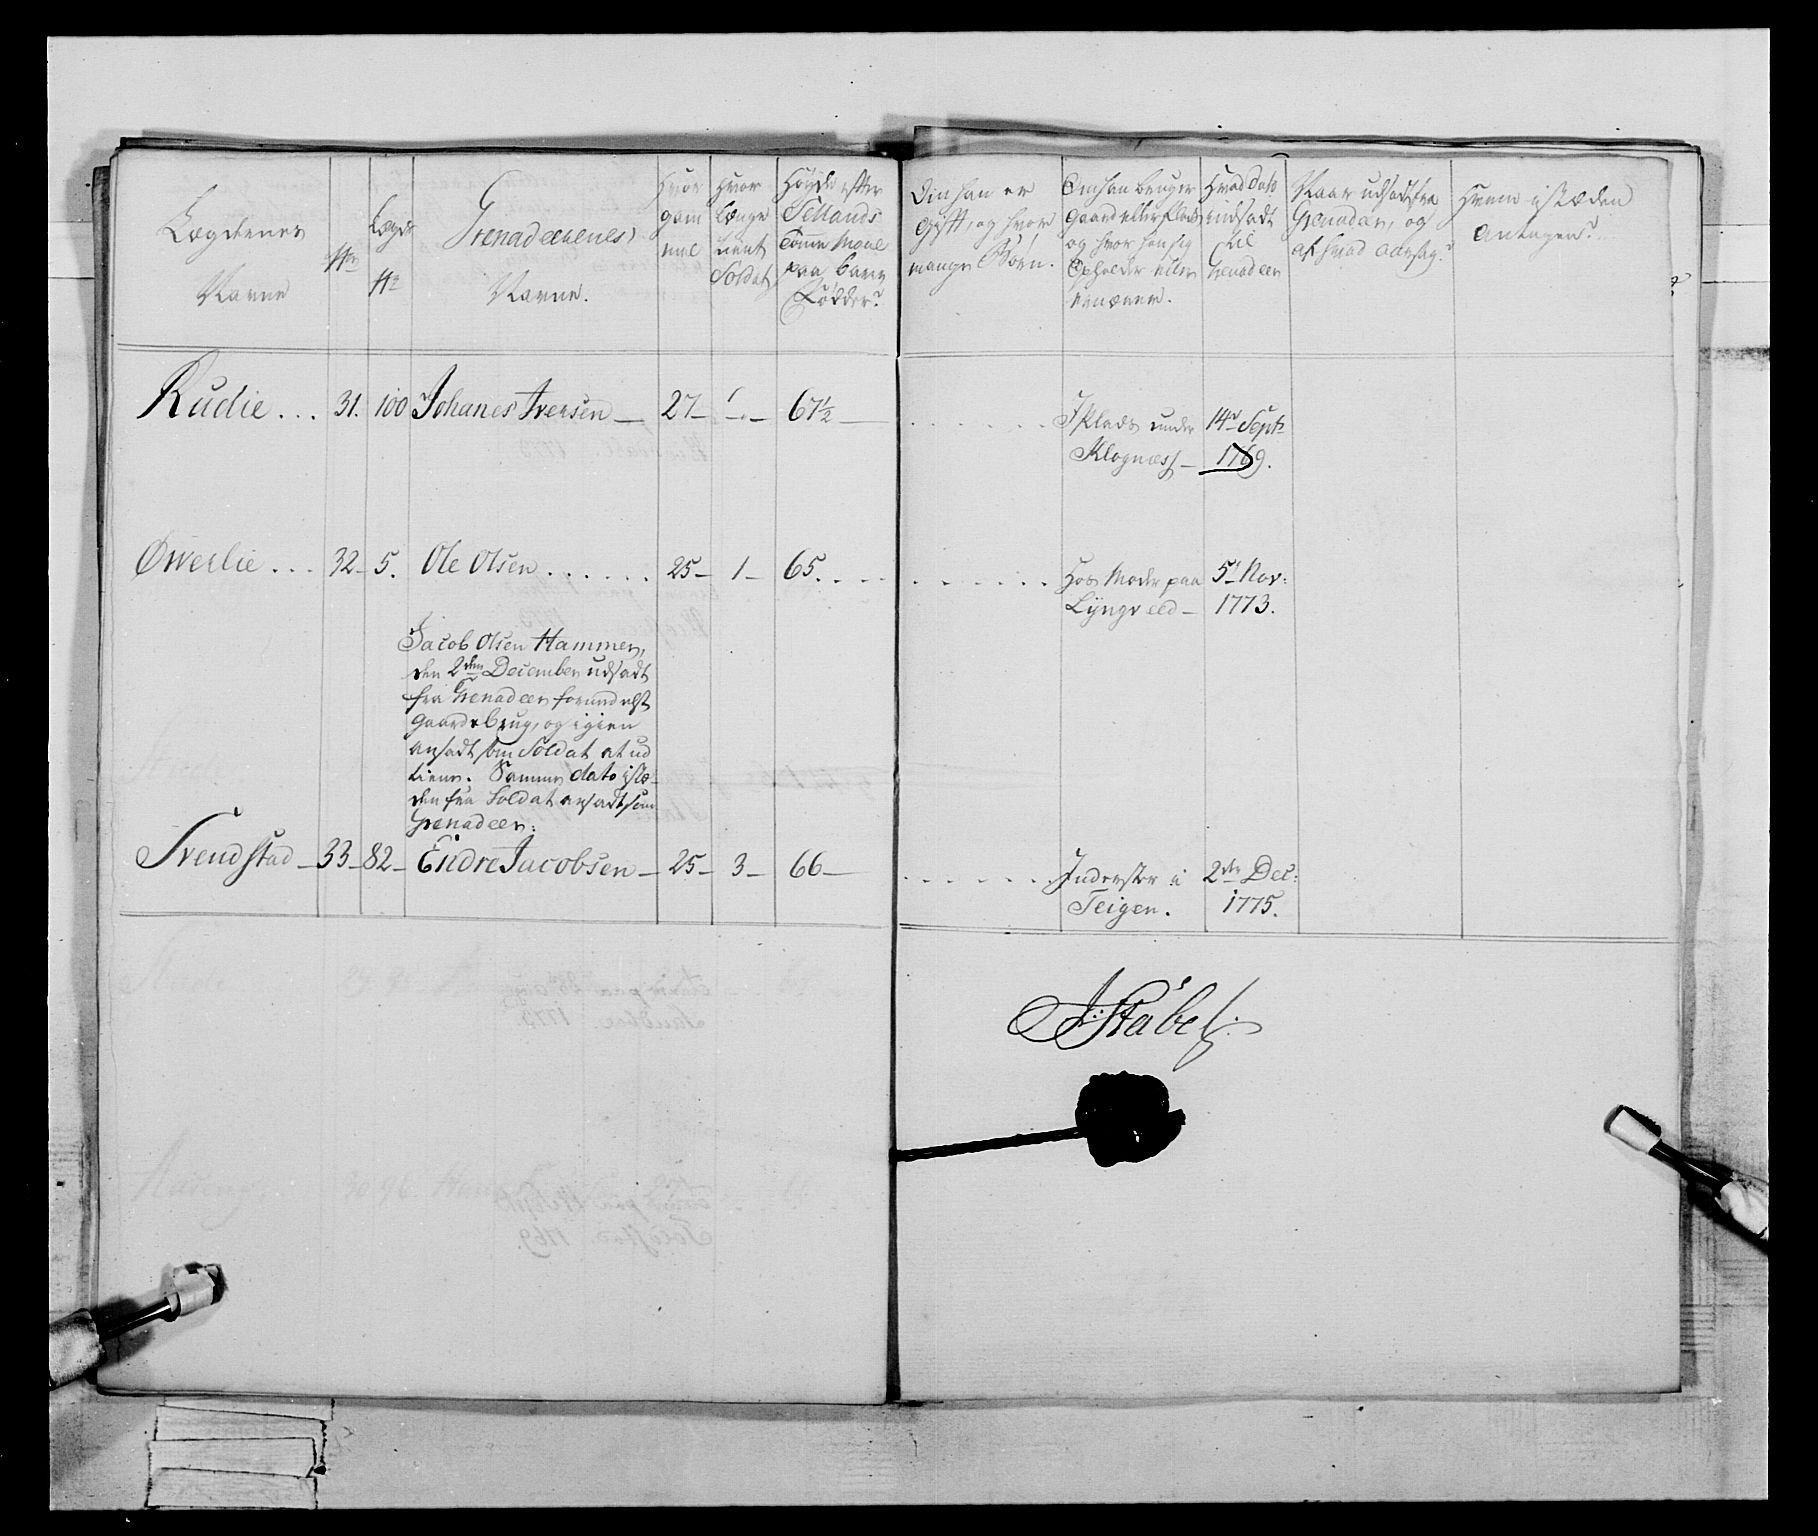 Lægdernes
Navne
No
Lægds
No
Grenadeerenes
Navne.
Hvor
gam
mel
Hvor
længe
tient
Soldat
Høyde efter
Sellands
Tomme Maal
paa bare
Fødder?
Om han er
Gift, og hvor
mange Børn.
Om han bruger
Gaard eller Plads
og hvor han sig
Opholder eller
Hvad Dato
indsadt
til
Grenadeer
Naar udsadt fra
Grenadeer, og
af hvad aarsag?
Hvem i stæden
Antagen?
Rudie . . . 31. 100 Johanes Iversen — 27 — 67½ —
I Plads under 14de Septr
Klognæs — 1769.
Øwerlie . . . 32 — 5. Ole Olsen . . . . . . 25 — 1 — 65. . . .
Hos Moder paa 5te Nov:
Lyngveld — 1773.
Jacob Olsen Hammer,
den 2den December udsadt
fra Grenadeer formedelst
Gaardebrug, og igien
ansadt som Soldat at ud
tiene. Samme dato istæ-
den fra Soldat ansadt som
Grenadeer:
Svendstad — 33 — 82 — Endre Jacobsen — 25 — 3 — 66 —
Inderster i 2den Dec:
Teigen. 1775.
J: Stabel: